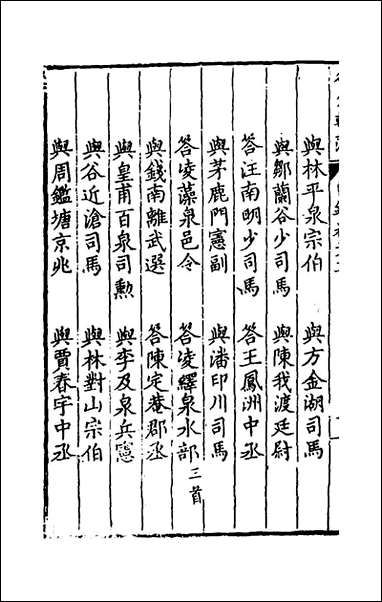 與林平泉宗伯　與方金湖司馬
與鄒蘭谷少司馬　與陳我渡廷尉
答汪南明少司馬　答王鳳洲中丞
與茅鹿門憲副　與潘印川司馬
答凌藻泉邑令　答凌繹泉水部三首
與錢南離武選　答陳定菴郡丞
與皇甫百泉司勲　與李及泉兵憲
與谷近滄司馬　與林對山宗伯
與周鑑塘京兆　與賈春宇中丞